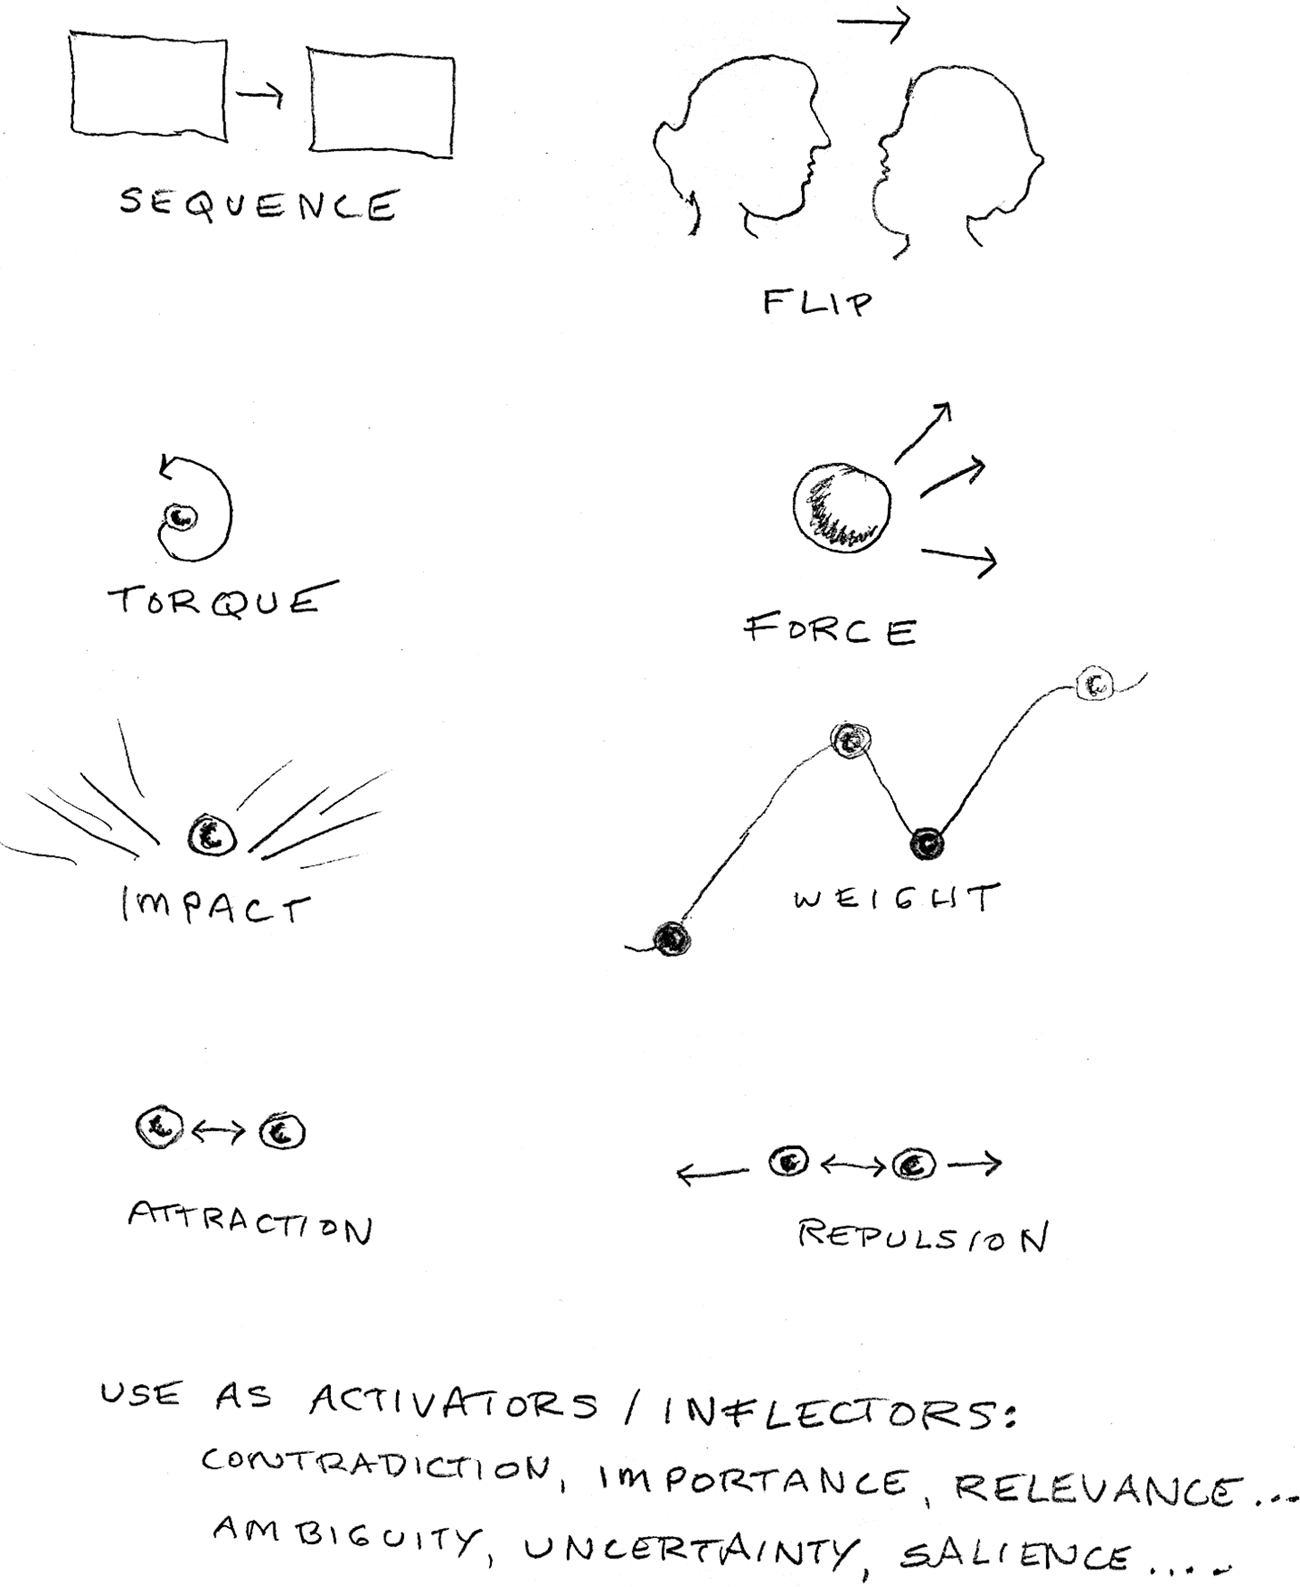 SEQUENCE
FLIP
TORQUE
FORCE
IMPACT
WEIGHT
ATTRACTION
REPULSION
USE AS ACTIVATORS / INFLECTORS:
CONTRADICTION, IMPORTANCE, RELEVANCE...
AMBIGUITY, UNCERTAINTY, SALIENCE....